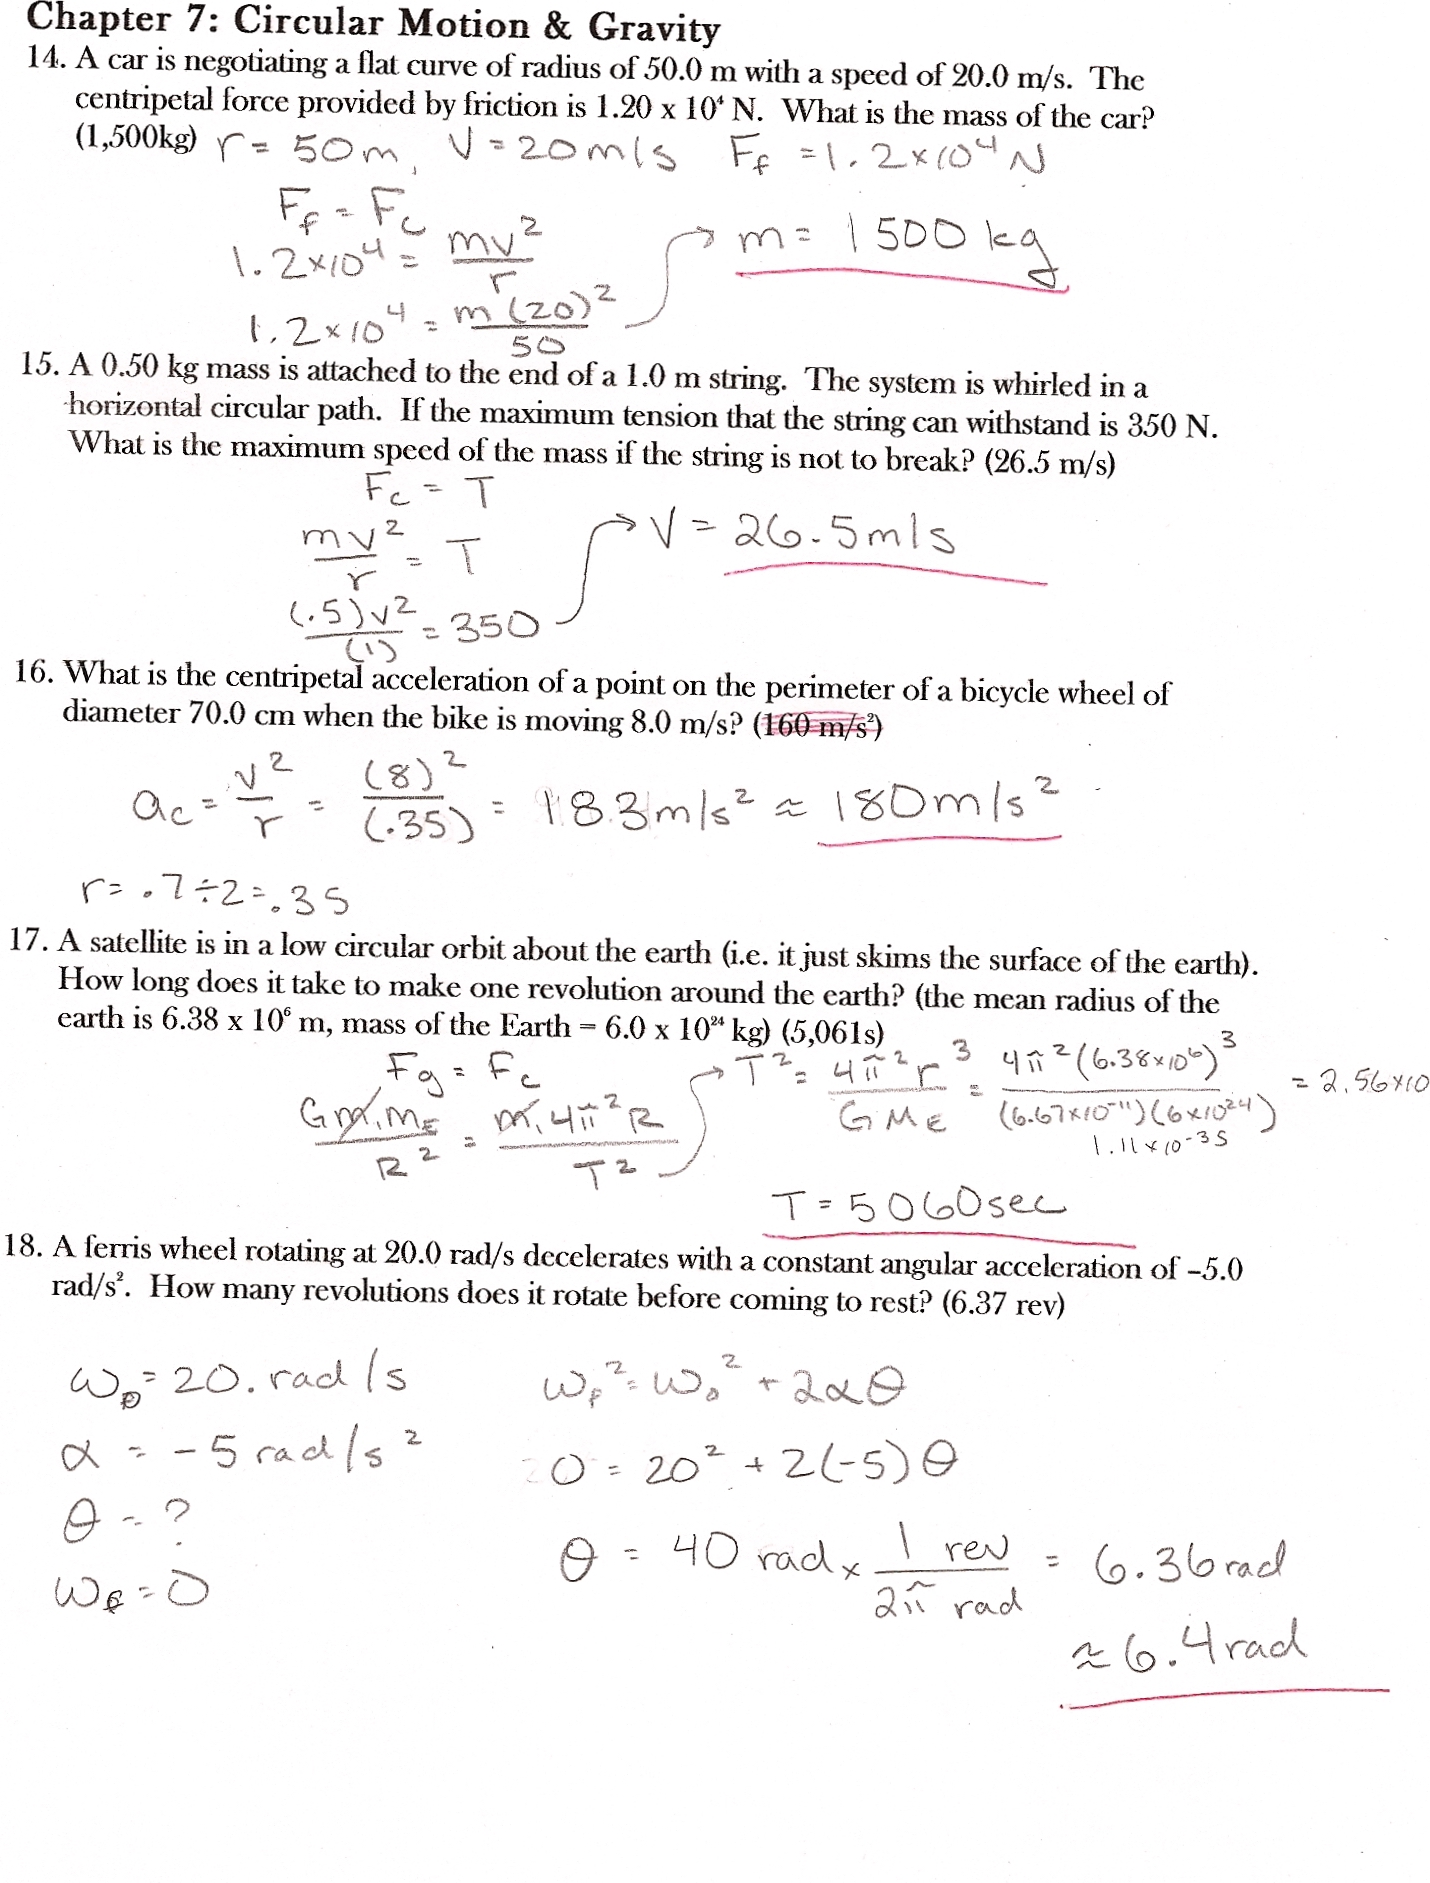 Chapter 7: Circular Motion & Gravity
14. A car is negotiating a flat curve of radius of 50.0 m with a speed of 20.0 m/s. The
centripetal force provided by friction is 1.20 x 10⁴ N. What is the mass of the car?
(1,500kg) r = 50m, V = 20m/s F_f = 1.2×10⁴ N
F_f = F_c
1.2×10⁴ = mv²/r
1.2×10⁴ = m(20)²/50
m = 1500 kg
15. A 0.50 kg mass is attached to the end of a 1.0 m string. The system is whirled in a
horizontal circular path. If the maximum tension that the string can withstand is 350 N.
What is the maximum speed of the mass if the string is not to break? (26.5 m/s)
F_c = T
mv²/r = T
(.5)v²/(1) = 350
V = 26.5m/s
16. What is the centripetal acceleration of a point on the perimeter of a bicycle wheel of
diameter 70.0 cm when the bike is moving 8.0 m/s? (160 m/s²)
a_c = v²/r = (8)²/(.35) = 183m/s² ≈ 180m/s²
r = .7÷2=.35
17. A satellite is in a low circular orbit about the earth (i.e. it just skims the surface of the earth).
How long does it take to make one revolution around the earth? (the mean radius of the
earth is 6.38 x 10⁶ m, mass of the Earth = 6.0 x 10²⁴ kg) (5,061s)
F_g = F_c
Gm₁M_E/R² = m₁4π²R/T²
T² = 4π²r³/GM_E = 4π²(6.38×10⁶)³/(6.67×10⁻¹¹)(6×10²⁴) = 2.56×10
1.11×10⁻³⁵
T = 5060sec
18. A ferris wheel rotating at 20.0 rad/s decelerates with a constant angular acceleration of –5.0
rad/s². How many revolutions does it rotate before coming to rest? (6.37 rev)
ω₀ = 20. rad/s
α = -5 rad/s²
θ = ?
ω_f = 0
ω_f² = ω₀² + 2αθ
0 = 20² + 2(-5)θ
θ = 40 rad × 1 rev/2π rad = 6.36rad
≈ 6.4rad